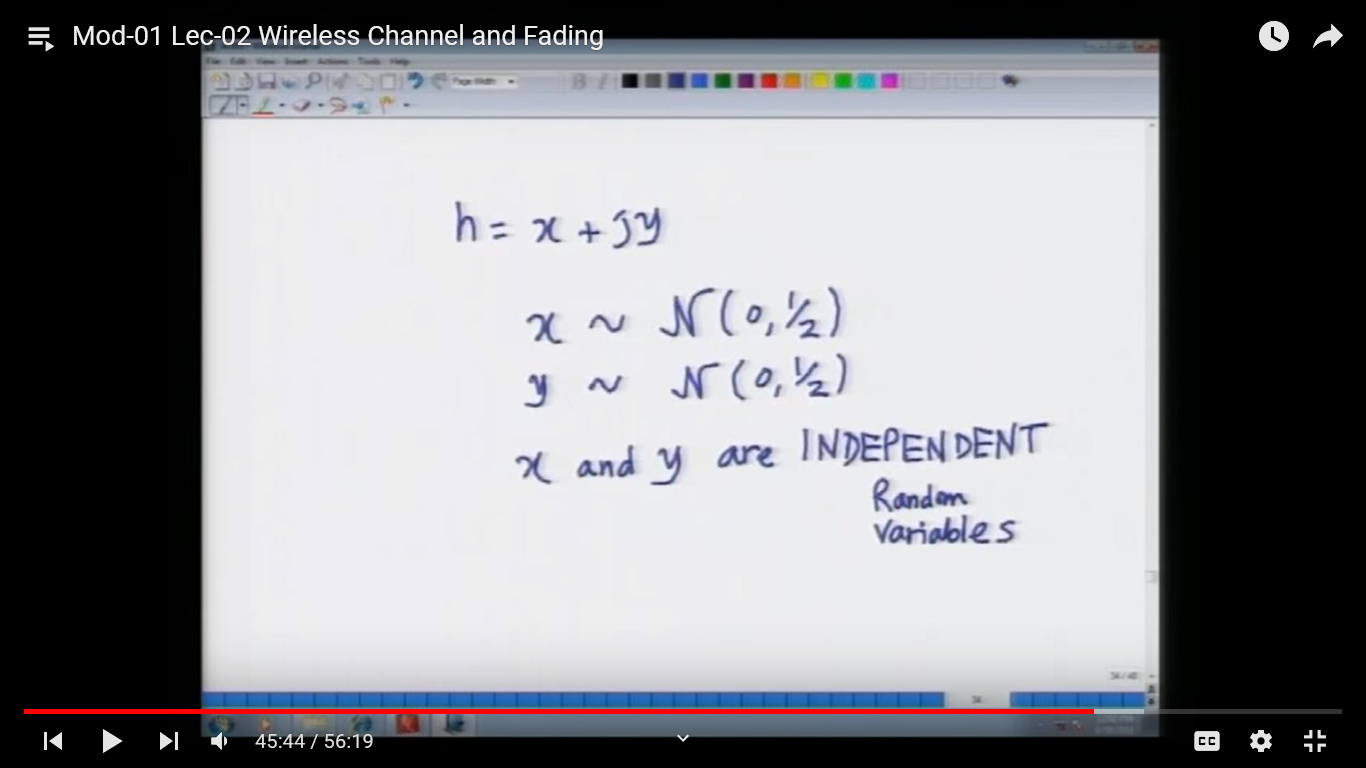 Mod-01 Lec-02 Wireless Channel and Fading
File Edit View Insert Actions Tools Help
Page Width
h = x + jy
x ~ N(0, 1/2)
y ~ N(0, 1/2)
x and y are INDEPENDENT
Random
Variables
34/40
45:44 / 56:19
CC